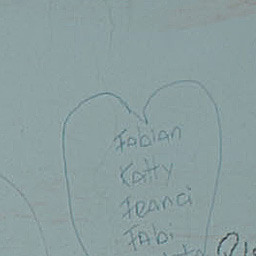 Fabian
Katty
Franci
FAbi